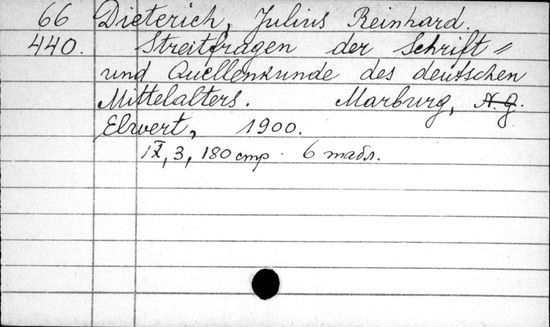 66 Dieterich, Julius Reinhard.
440. Streitfragen der Schrift=
und Quellenkunde des deutschen
Mittelalters. Marburg, N. G.
Elwert, 1900.
IX, 3, 180 стр. 6 табл.